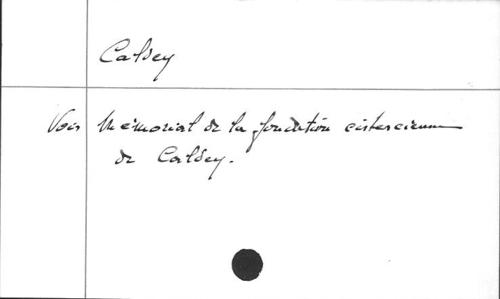 Caldey
Voir Mémorial de la fondation cistercienne
de Caldey.